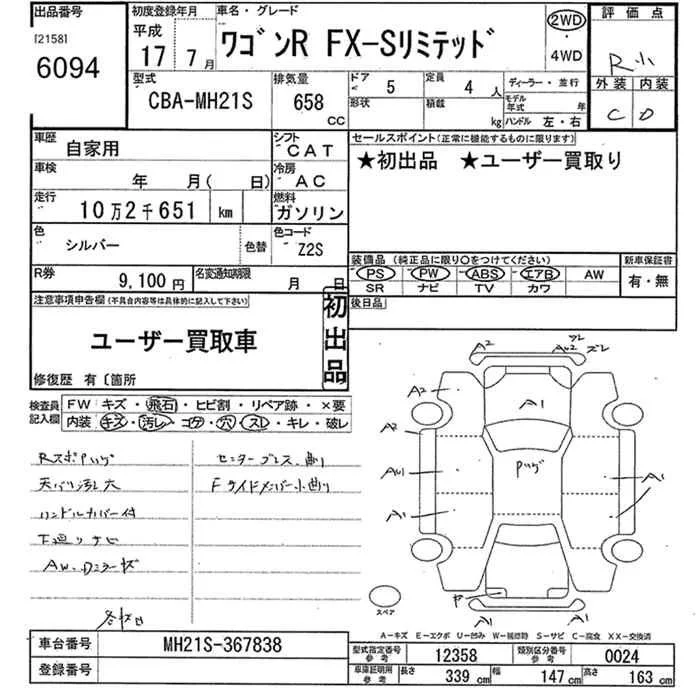 出品番号
[2158]
6094
初度登録年月
平成
17 年 7 月
車名・グレード
ワゴンR FX-Sリミテッド
2WD
・
4WD
評価点
R小
外装 内装
C D
型式
CBA-MH21S
排気量
658
CC
ドア
5
定員
4 人
形状
積載
kg
ディーラー・並行
モデル年式 年
ハンドル 左・右
車歴
自家用
シフト
CAT
車検
年 月( 日)
冷房
AC
走行
10万2千651 km
燃料
ガソリン
色
シルバー
色替
色コード
Z2S
R券
9,100円
名変通知期限
月 日
セールスポイント(正常に機能するものに限ります)
★初出品 ★ユーザー買取り
装備品 (純正品に限り○をつけてください)
新車保証書
PS PW ABS エアB AW
SR ナビ TV カワ
有・無
後日品
注意事項申告欄(不具合内容等は具体的に記入して下さい)
初出品
ユーザー買取車
修復歴 有〔箇所
検査員記入欄
FW キズ・飛石・ヒビ割・リペア跡・×要
内装 キズ・汚レ・コゲ・穴・スレ・キレ・破レ
天バリ汚レ大
ハンドルカバー付
下廻りサビ
センターブレス曲り
Fサイドメンバー小曲り
A2
AU2
ズレ
A2
A1
A2
AU1
A1
A1
A1
A1
スペア
A−キズ E−エクボ U−凹み W−補修跡 S−サビ C−腐食 XX−交換済
車台番号
MH21S-367838
登録番号
型式指定番号
参考
12358
類別区分番号
参考
0024
車庫証明用
参考
長さ 339 cm 幅 147 cm 高さ 163 cm